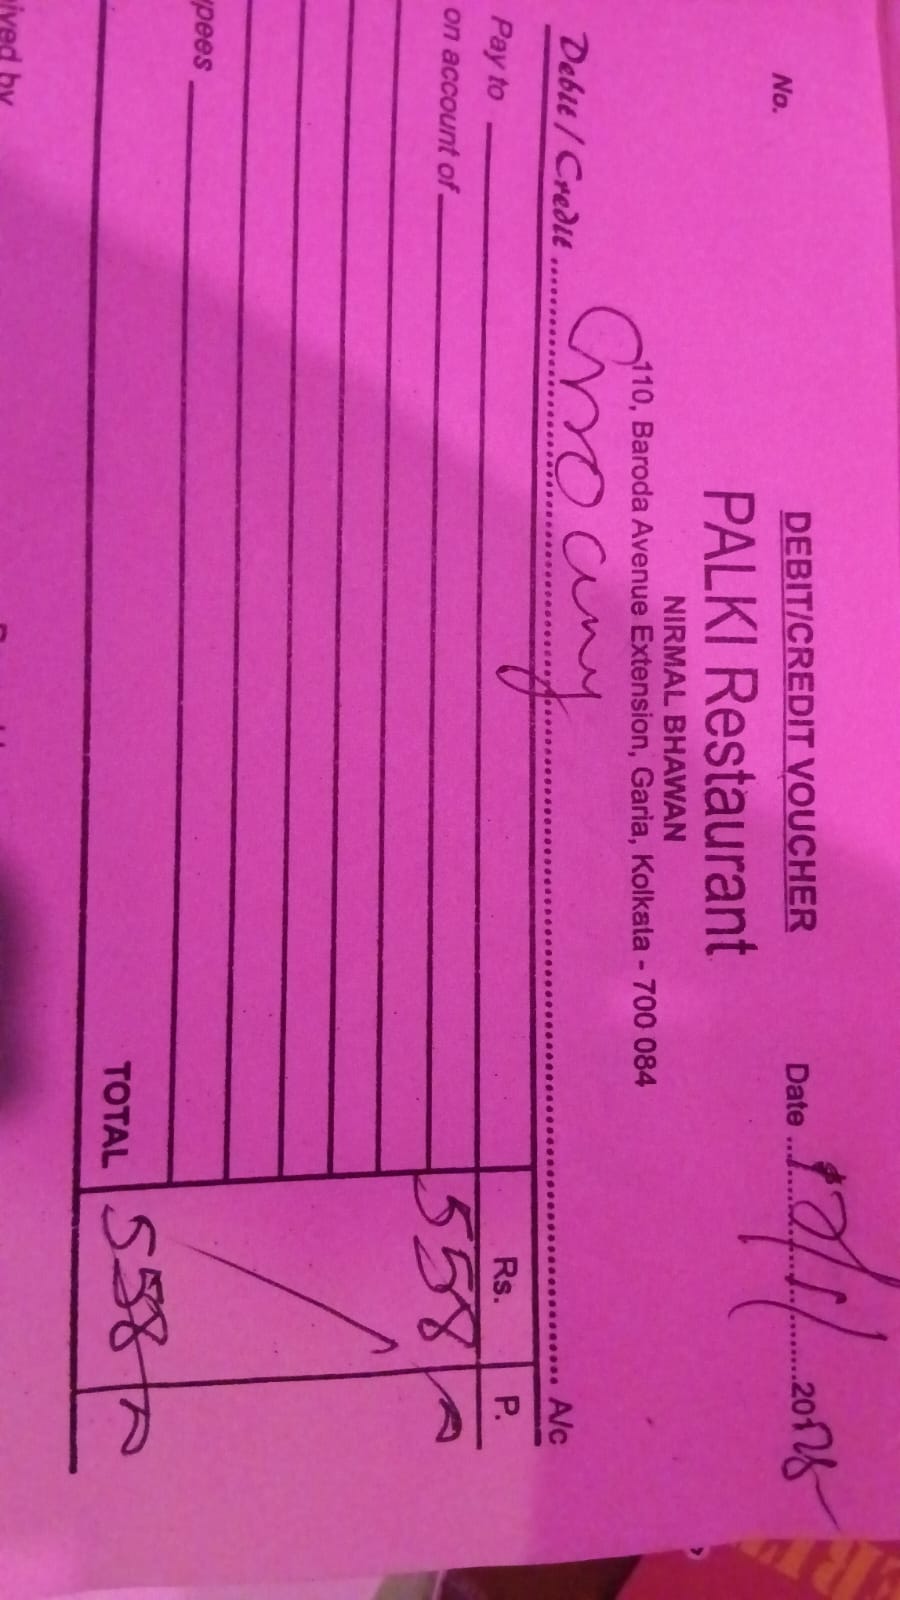 DEBIT/CREDIT VOUCHER
No.
Date ............ 201
PALKI Restaurant
NIRMAL BHAWAN
110, Baroda Avenue Extension, Garia, Kolkata - 700 084
Debit / Credit ............ Grocery ............ A/c
Pay to Rs. P.
on account of 558
upees
TOTAL 558
ived by